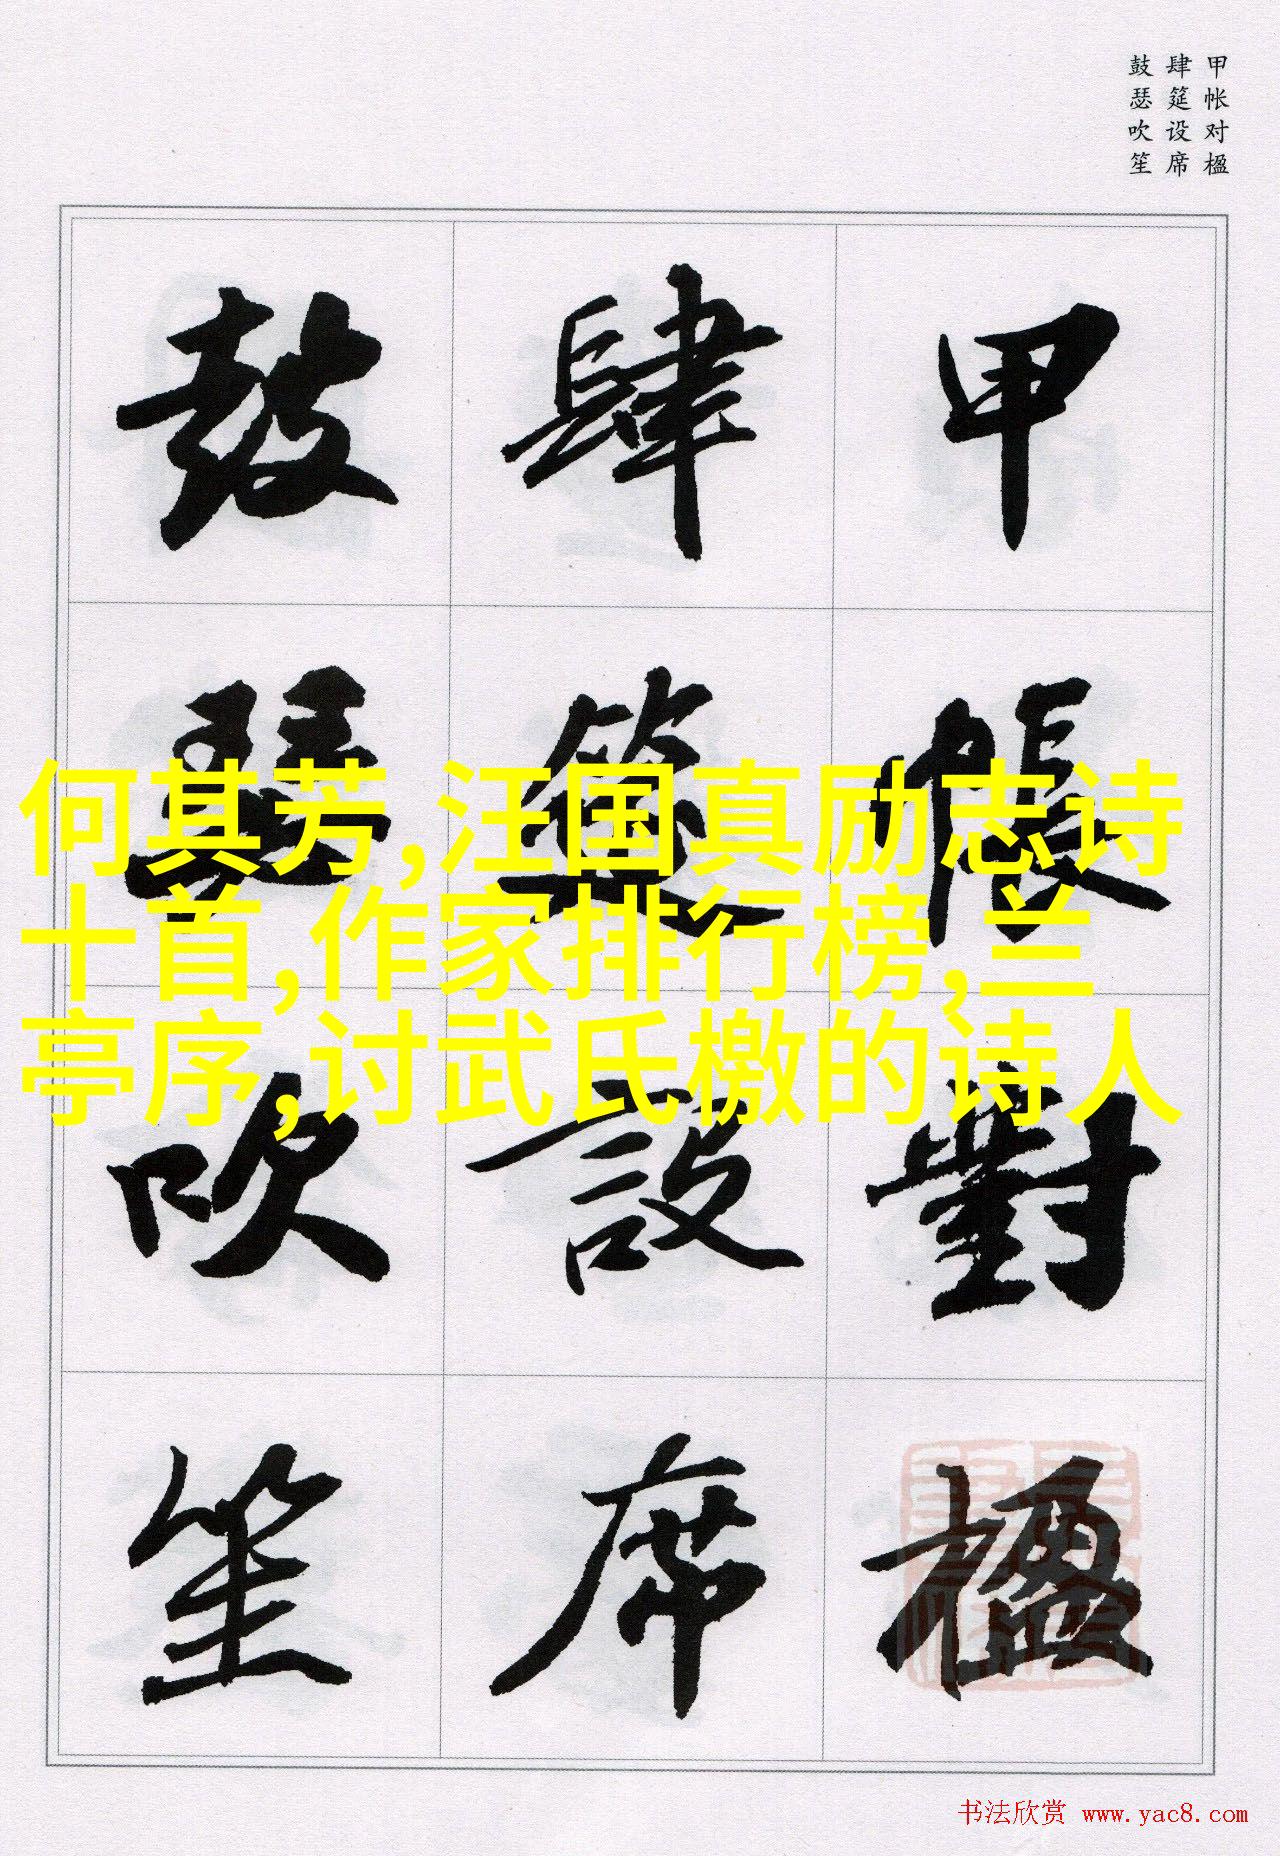 甲帐对楹
肆筵设席
鼓瑟吹笙
甲帳對楹
肆筵設席
鼓瑟吹笙
何其芳,汪国真励志诗
十首,作家排行榜,兰
亭序,讨武氏檄的诗人
书法欣赏 www.yac8.com